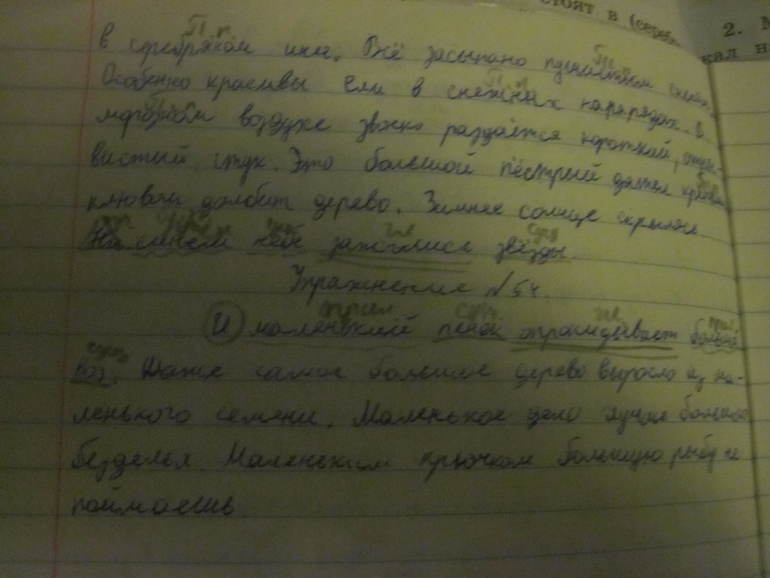 стоят в (сереб-
2.
кал н
в серебряном инее. Всё засыпано пушистым снегом.
Особенно красивы ели в снежных нарядах. В
морозном воздухе звонко раздаётся короткий,
вистый стук. Это большой пёстрый дятел
клювом долбит дерево. Зимнее солнце скрылось.
На синем небе зажглись звёзды.
Упражнение №54.
И маленький пенёк опрокидывает большой
воз. Даже самое большое дерево выросло из ма-
ленького семени. Маленькое дело лучше большого
безделья. Маленьким крючком большую рыбу не
поймаешь